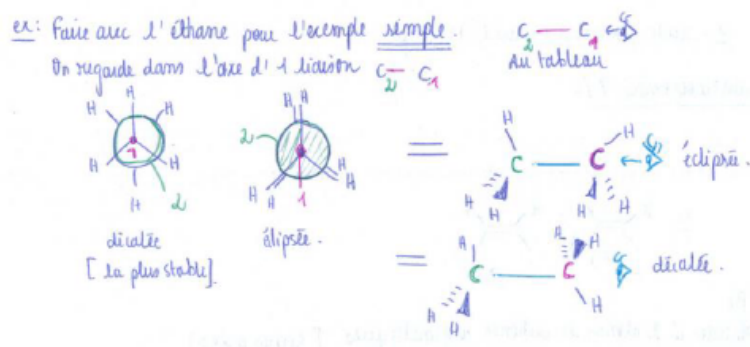 ex: Faire avec l'éthane pour l'exemple simple.
On regarde dans l'axe d'1 liaison C2 - C1
C2 — C1
Au tableau
H H H
H H
H
1
2
décalée
[la plus stable].
H H
H H
H H
2
1
élipsée.
= H C C H
H H H H
éclipsée.
= H C C H H
H H H
décalée.